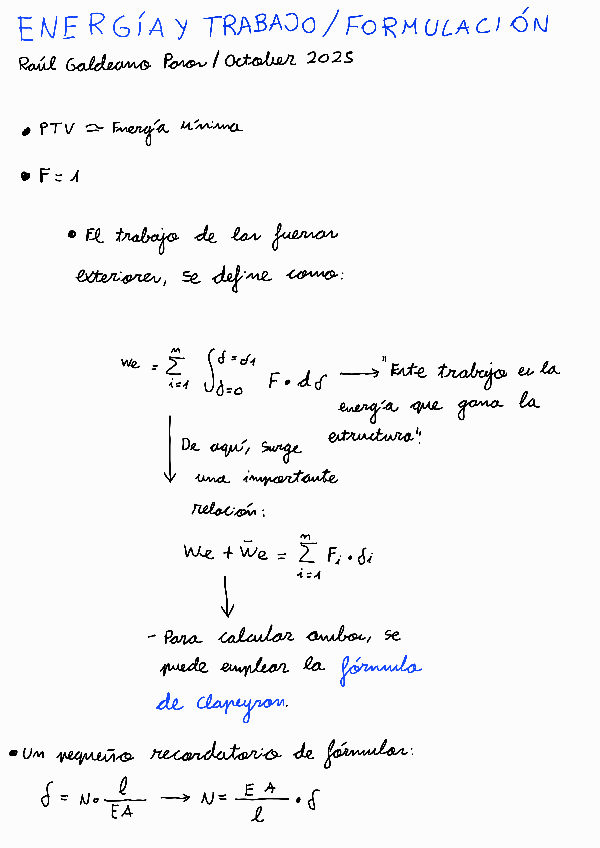 ENERGÍA Y TRABAJO/FORMULACIÓN
Raúl Galdeano / October 2025
• PTV ≃ Energía Mínima
• F = 1
• El trabajo de las fuerzas
exteriores, se define como:
We = ∑_{i=1}^{m} ∫_{δ=0}^{δ=δ1} F • dδ → "Este trabajo es la
energía que gana la
estructura".
De aquí, surge
una importante
relación:
We + W̄e = ∑_{i=1}^{m} Fi • δi
- Para calcular ambos, se
puede emplear la fórmula
de Clapeyron.
• Un pequeño recordatorio de fórmulas:
δ = N • l/EA → N = EA/l • δ